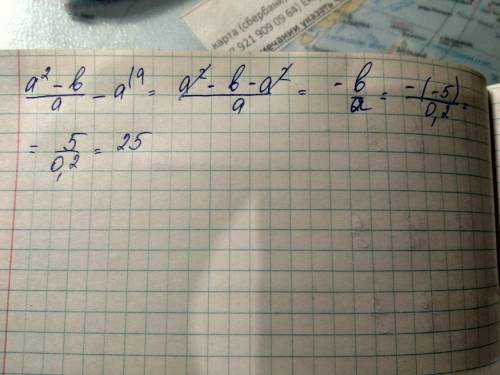 карта (сбербан
7 921 909 09 64) Ек
мечании указать
(a² - b)/a - a^{\a} = (a² - b - a²)/a = -b/a = -(-5)/0,2 =
= 5/0,2 = 25